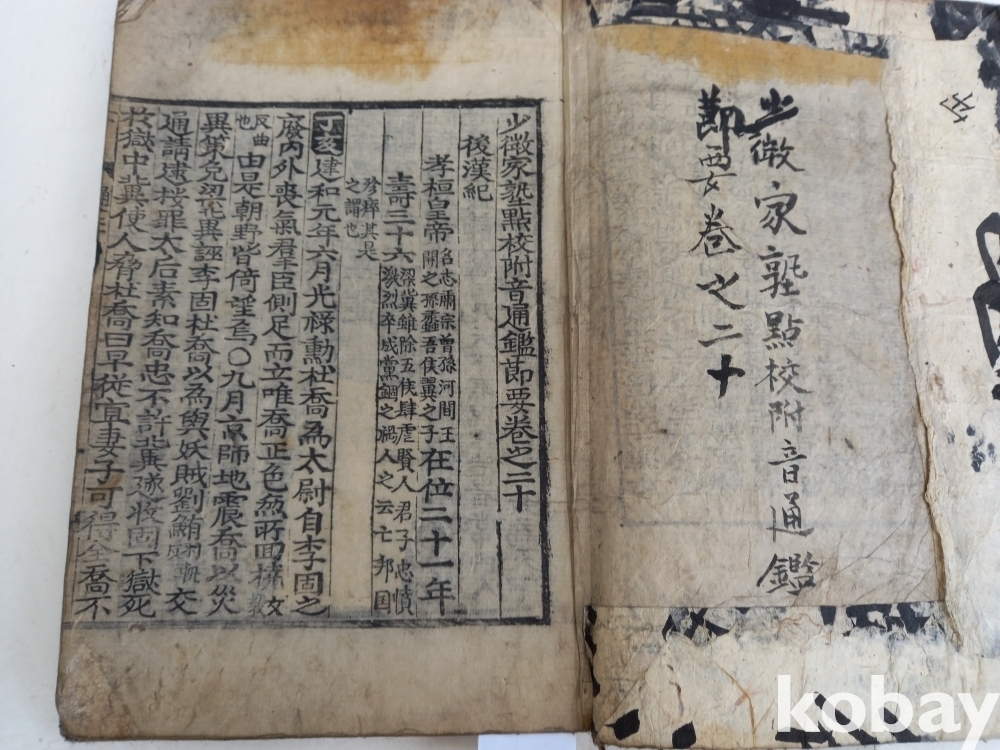 少微家塾點校附音通鑑
節要卷之二十
少微家塾點校附音通鑑節要卷之二十
後漢紀
孝桓皇帝 名志肅宗曾孫河間王開之孫蠡吾侯翼之子在位二十一年
壽三十六 梁冀雖除五侯肆虐賢人君子忠憤激烈卒成黨錮之禍人之云亡邦国
殄瘁其是之謂也
丁亥建和元年六月光祿勳杜喬為太尉自李固之
廢內外喪氣羣臣側足而立唯喬正色無所回橈 女教反曲也
由是朝野皆倚望焉〇九月京師地震喬以災
異策免梁冀誣李固杜喬以為與妖賊劉鮪交
通請逮按罪太后素知喬忠不許冀遂收固下獄死
於獄中冀使人脅杜喬曰早從宜妻子可得全喬不
kobay